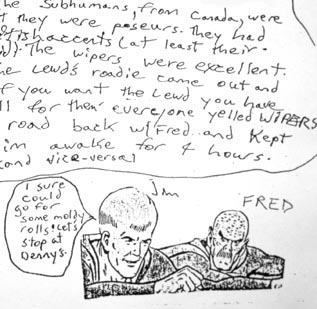 he Subhumans, from Canada, were
t they were poseurs. They had
ish accents (at least their
The wipers were excellent.
he Lewd's roadie came out and
f you want the Lewd you have
ll for them everyone yelled WIPERS
road back w/Fred and kept
im awake for 4 hours.
and vice-versa)
I sure
could
go for
some moldy
rolls! Let's
stop at
Denny's.
Jim
FRED